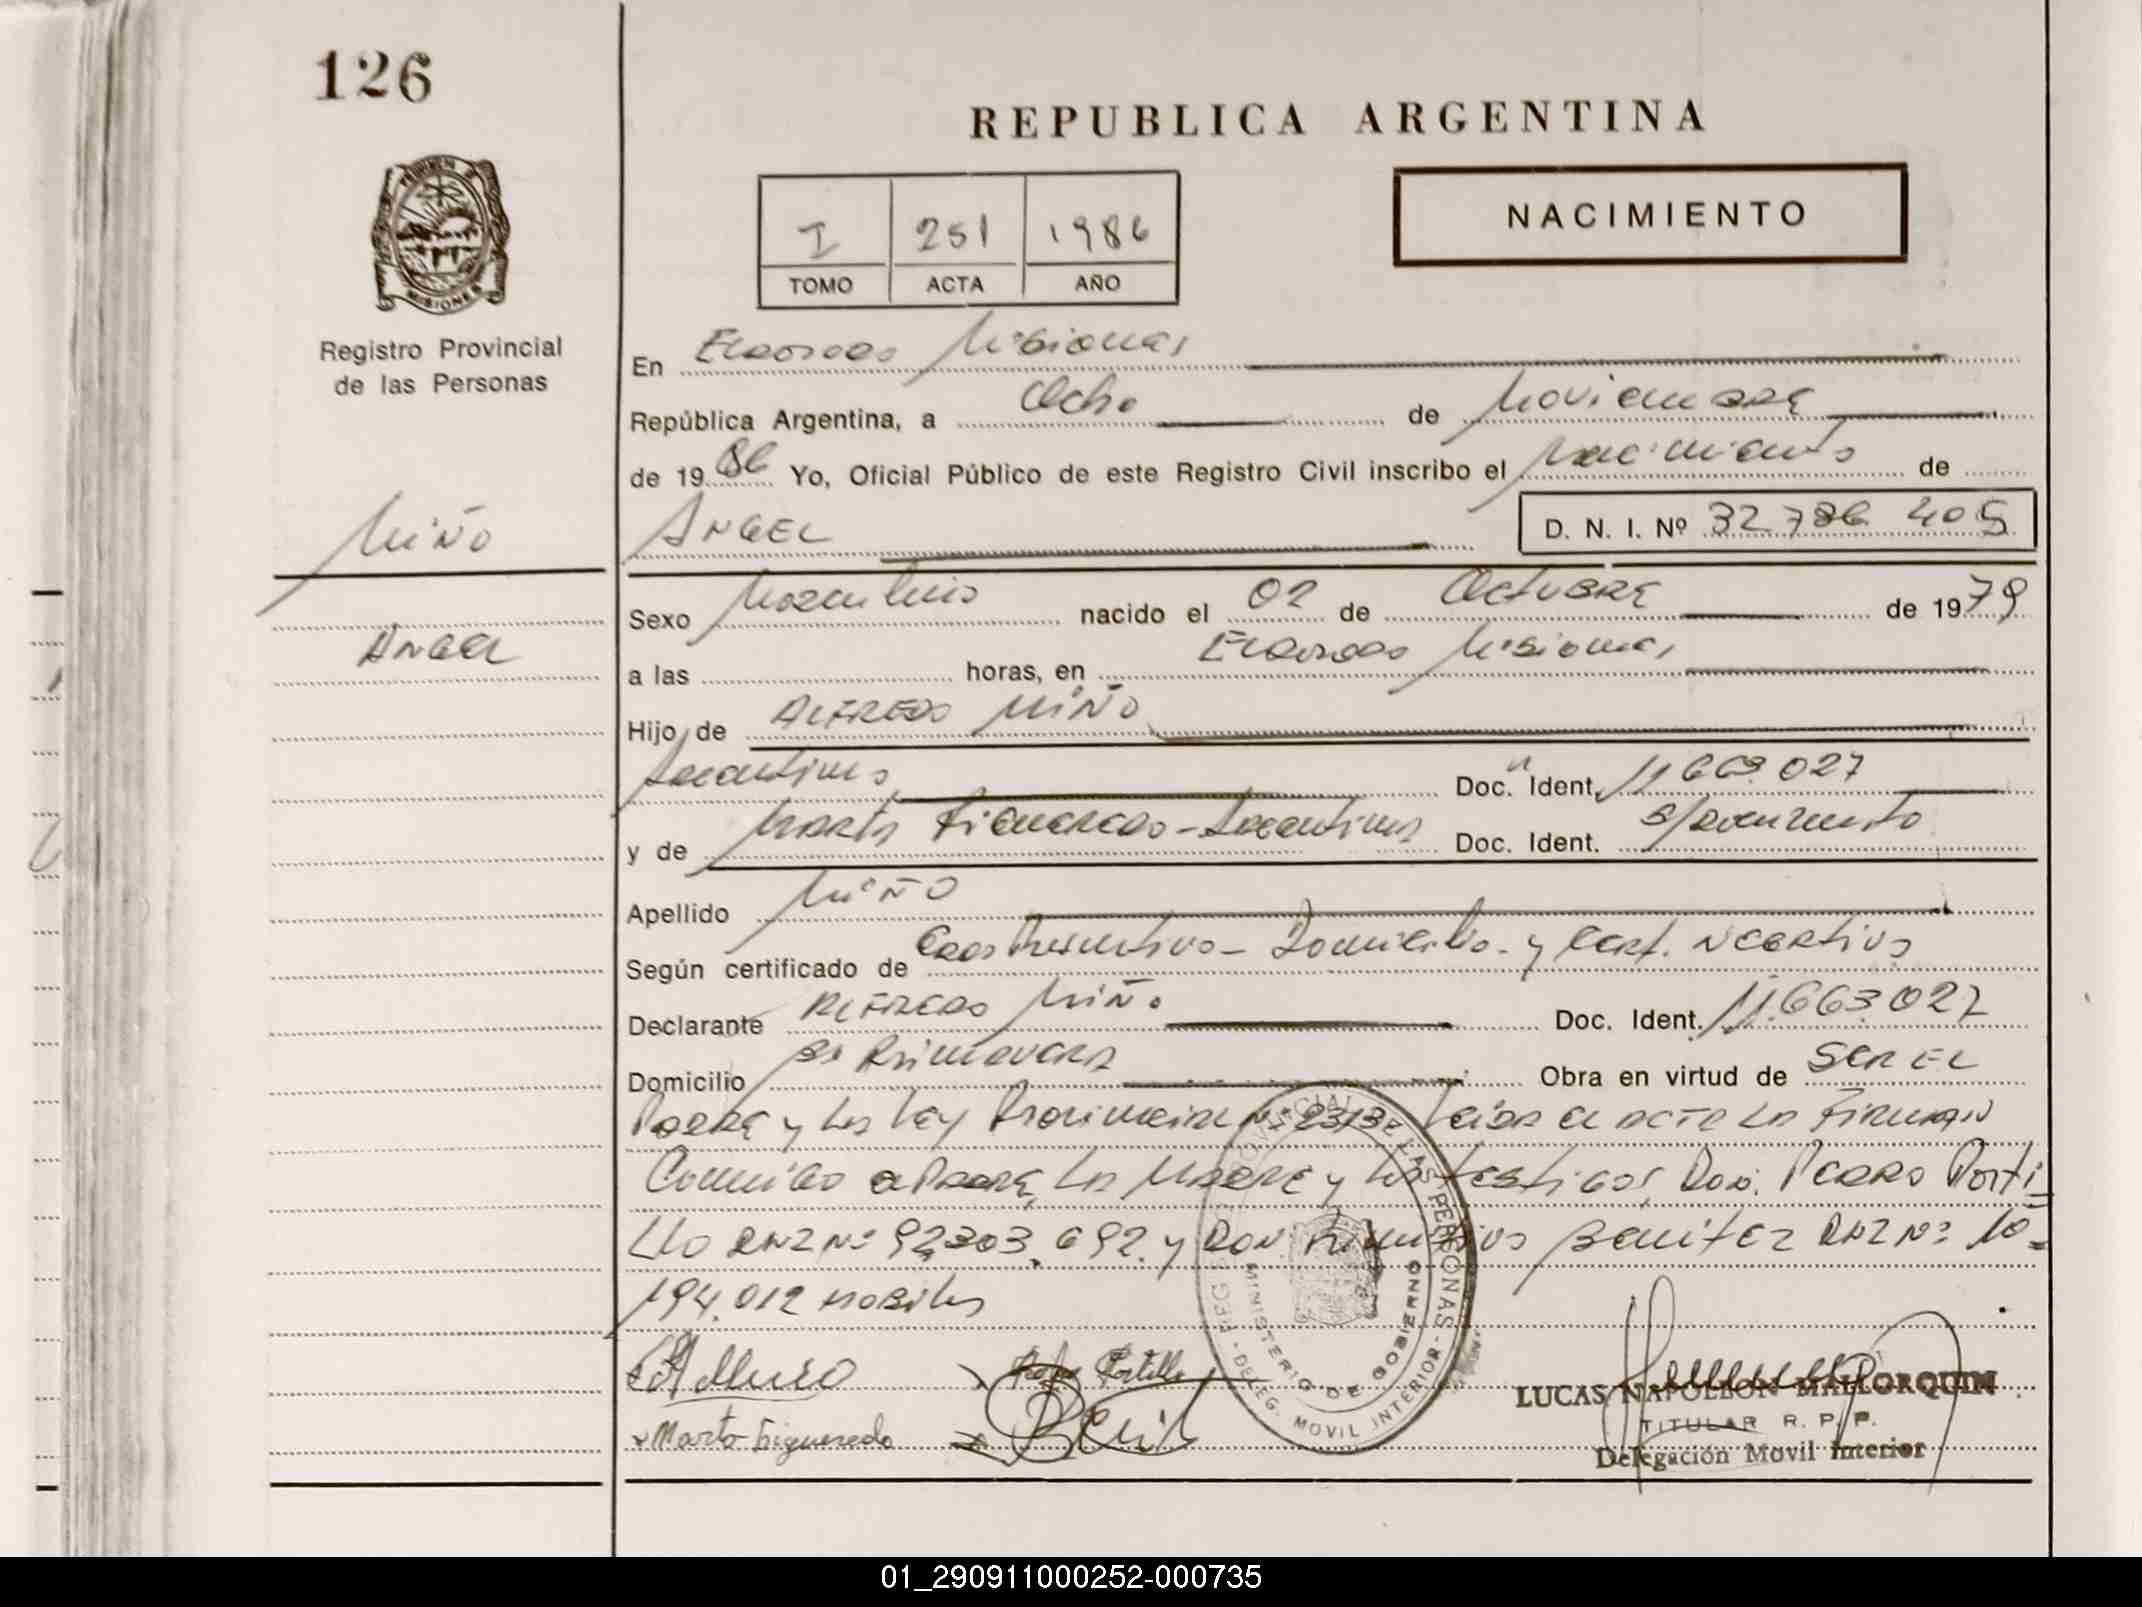 126
REPUBLICA ARGENTINA
NACIMIENTO
I 251 1986
TOMO ACTA AÑO
MISIONES
Registro Provincial
de las Personas
En Eldorado Misiones
República Argentina, a Ocho de Noviembre
de 1986 Yo, Oficial Público de este Registro Civil inscribo el Nacimiento de
Miño
ANGEL D. N. I. Nº 32.786.405
Angel
Sexo Masculino nacido el 02 de Octubre de 1979
a las horas, en Eldorado Misiones
Hijo de Alfredo Miño
Argentino Doc. Ident. 11.663.027
y de Marta Figueredo - Argentina Doc. Ident. s/documento
Apellido Miño
Según certificado de Edad Presuntiva - Domicilio - y Cert. Negativo
Declarante Alfredo Miño Doc. Ident. 11.663.027
Domicilio Bº Primavera Obra en virtud de Ser el
Padre y la Ley Provincial Nº 2313 Leida el acta la Firman
Conmigo el Padre, la Madre y los testigos Don. Pedro Porti=
llo DNI Nº 92.303.692. y Don Primitivo Benitez DNI Nº 10=
194.012 habiles
REGISTRO PROVINCIAL DE LAS PERSONAS
MINISTERIO DE GOBIERNO
DELEG. MOVIL INTERIOR
Portillo
Marta Figueredo
LUCAS NAPOLEON MALLORQUIN
TITULAR R. P. P.
Delegación Movil Interior
01_290911000252-000735